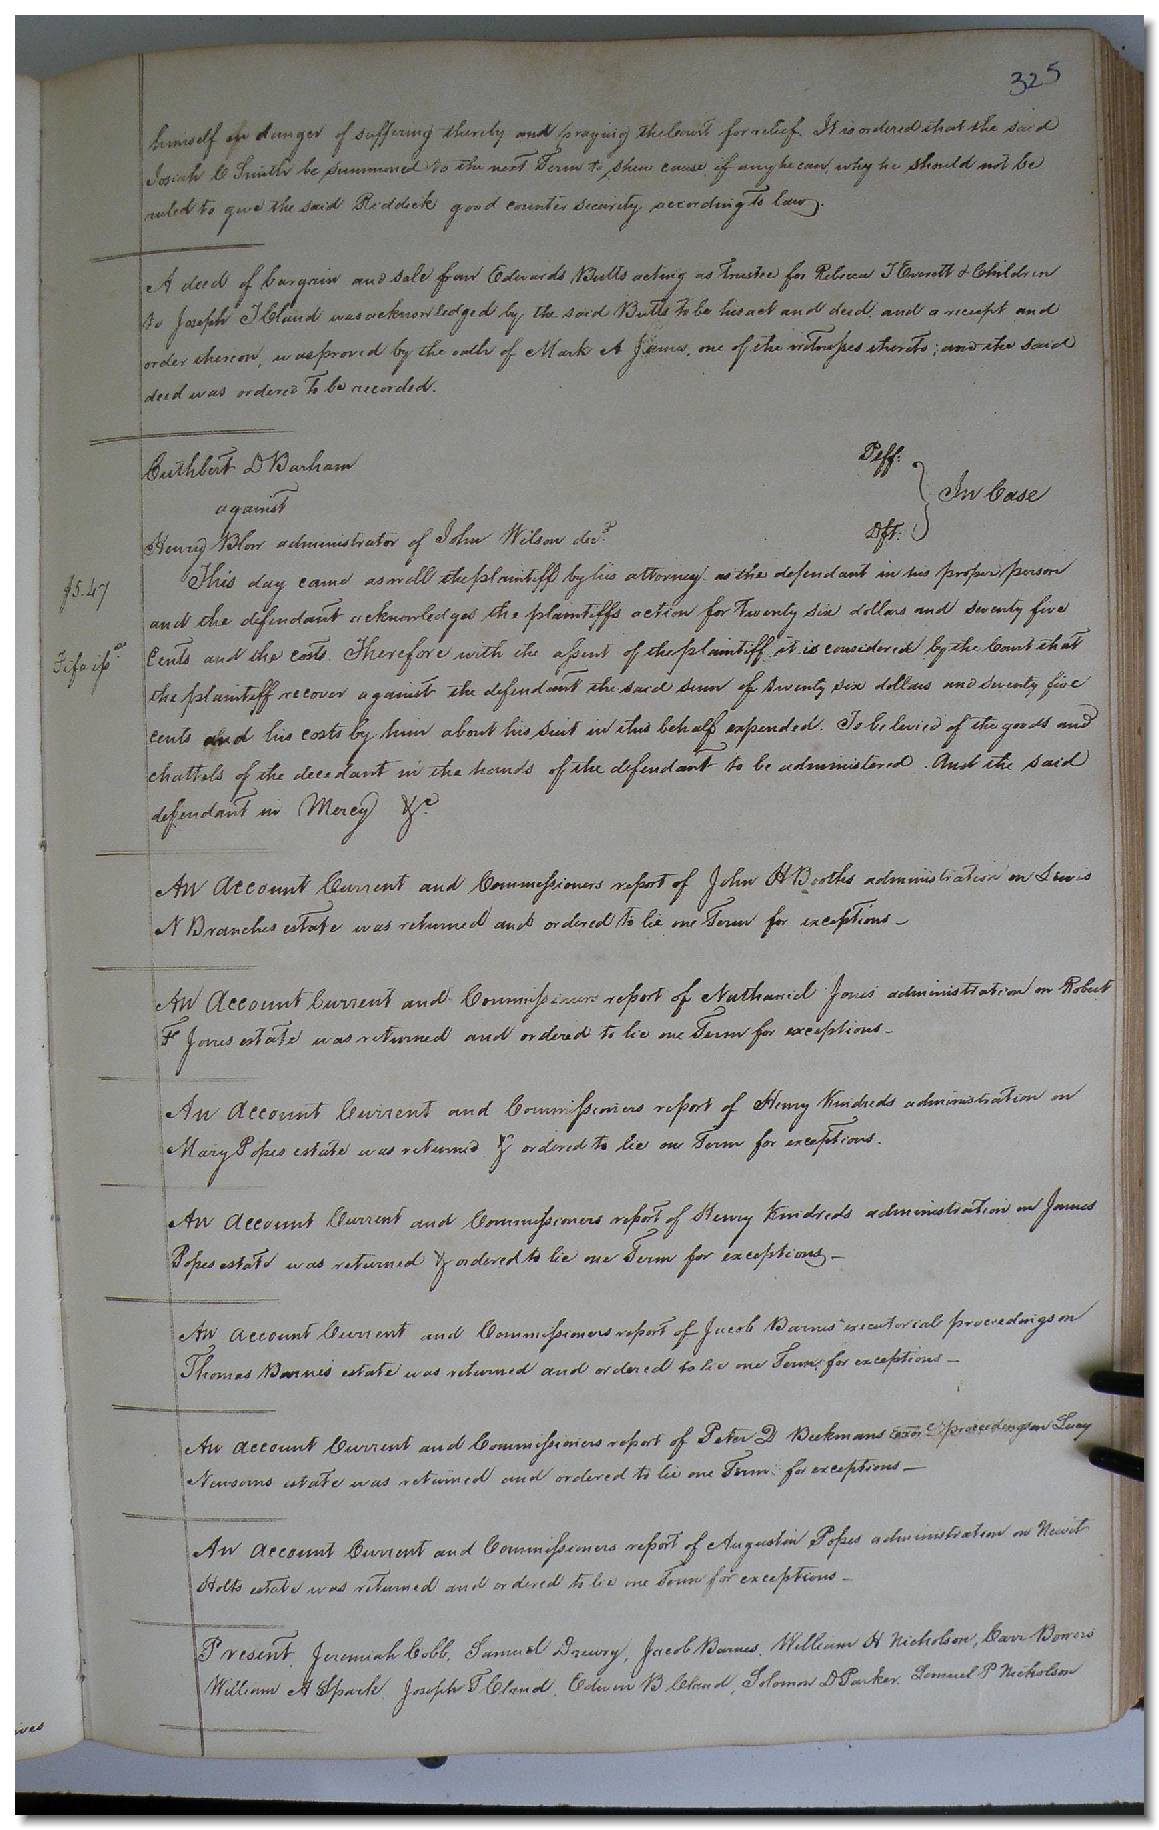 325
himself in danger of suffering thereby and praying the Court for relief. It is ordered that the said
Josiah C Smith be summoned to the next Term to shew cause if any he can, why he should not be
ruled to give the said Riddick good counter security according to law.
A deed of bargain and sale from Edwards Butts acting as trustee for Rebecca T Everett & Children
to Joseph T Claud was acknowledged by the said Butts to be his act and deed. and a receipt and
order thereon, was proved by the oath of Mark A James, one of the witnesses thereto; and the said
deed was ordered to be recorded.
Cuthbert D Barham Plff:
against In Case
Henry Blow administrator of John Wilson decd. Dft:
This day came as well the plaintiff by his attorney as the defendant in his proper person
$5.47
and the defendant acknowledges the plaintiffs action for twenty six dollars and seventy five
Cents and the costs. Therefore with the assent of the plaintiff it is considered by the Court that
Fi fa
the plaintiff recover against the defendant the said sum of twenty six dollars and seventy five
cents and his costs by him about his suit in this behalf expended. To be levied of the goods and
chattels of the decedant in the hands of the defendant to be administered. And the said
defendant in Mercy &c.
An Account Current and Commissioners report of John H Booths administration on Lewis
N Branches estate was returned and ordered to lie one Term for exceptions_
An Account Current and Commissioners report of Nathaniel Jones administration on Robert
F Jones estate was returned and ordered to lie one Term for exceptions_
An Account Current and Commissioners report of Henry Kindreds administration on
Mary Popes estate was returned & ordered to lie on Term for exceptions.
An Account Current and Commissioners report of Henry Kindreds administration on James
Popes estate was returned & ordered to lie one Term for exceptions_
An Account Current and Commissioners report of Jacob Barnes executorial proceedings on
Thomas Barnes estate was returned and ordered to lie one Term for exceptions_
An account Current and Commissioners report of Peter D Beekmans proceedings on Lucy
Newsoms estate was returned and ordered to lie one Term for exceptions_
An Account Current and Commissioners report of Augustin Popes administration on Newit
Holts estate was returned and ordered to lie one Term for exceptions_
Present, Jeremiah Cobb, Samuel Drewry, Jacob Barnes, William H Nicholson, Carr Bowers
William A Spark, Joseph T Claud, Edwin B Claud, Solomon D Parker, Lemuel P Nicholson